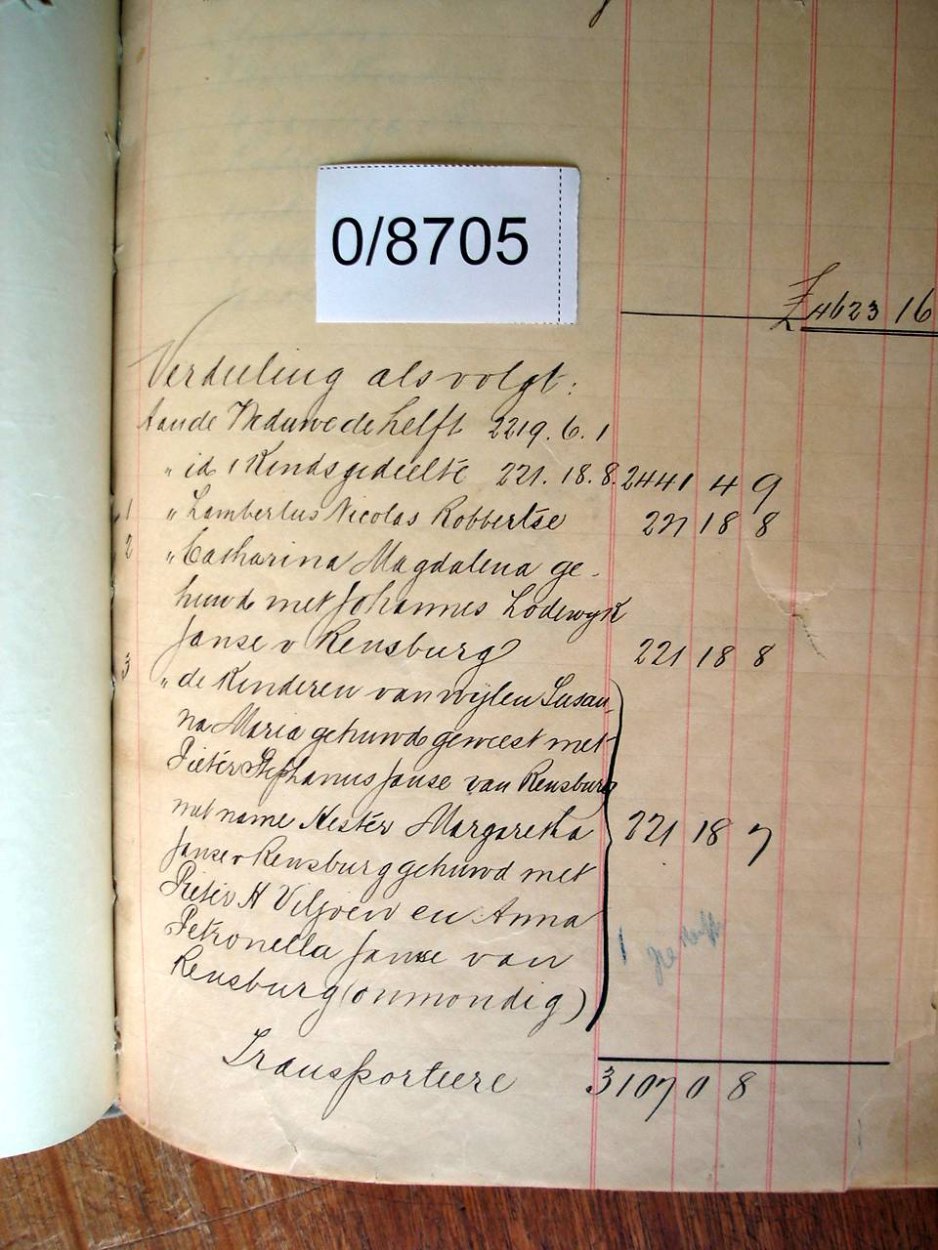 0/8705
£ 4623 16
Verdeeling als volgt:
Aan de Weduwe de helft 2219. 6. 1
" id 1 Kindsgedeelte 221. 18. 8. 2441 4 9
1 " Lambertus Nicolas Robbertse 221 18 8
2 " Catharina Magdalena ge-
huwd met Johannes Lodewyk
Janse v Rensburg 221 18 8
3 " de Kinderen van wijlen Susan-
na Maria gehuwd geweest met
Pieter Stephanus Janse van Rensburg
met name Hester Margaretha 221 18 7
Janse v Rensburg gehuwd met
Pieter H Viljoen en Anna
Petronella Janse van
Rensburg (onmondig)
Transporteere 3107 0 8